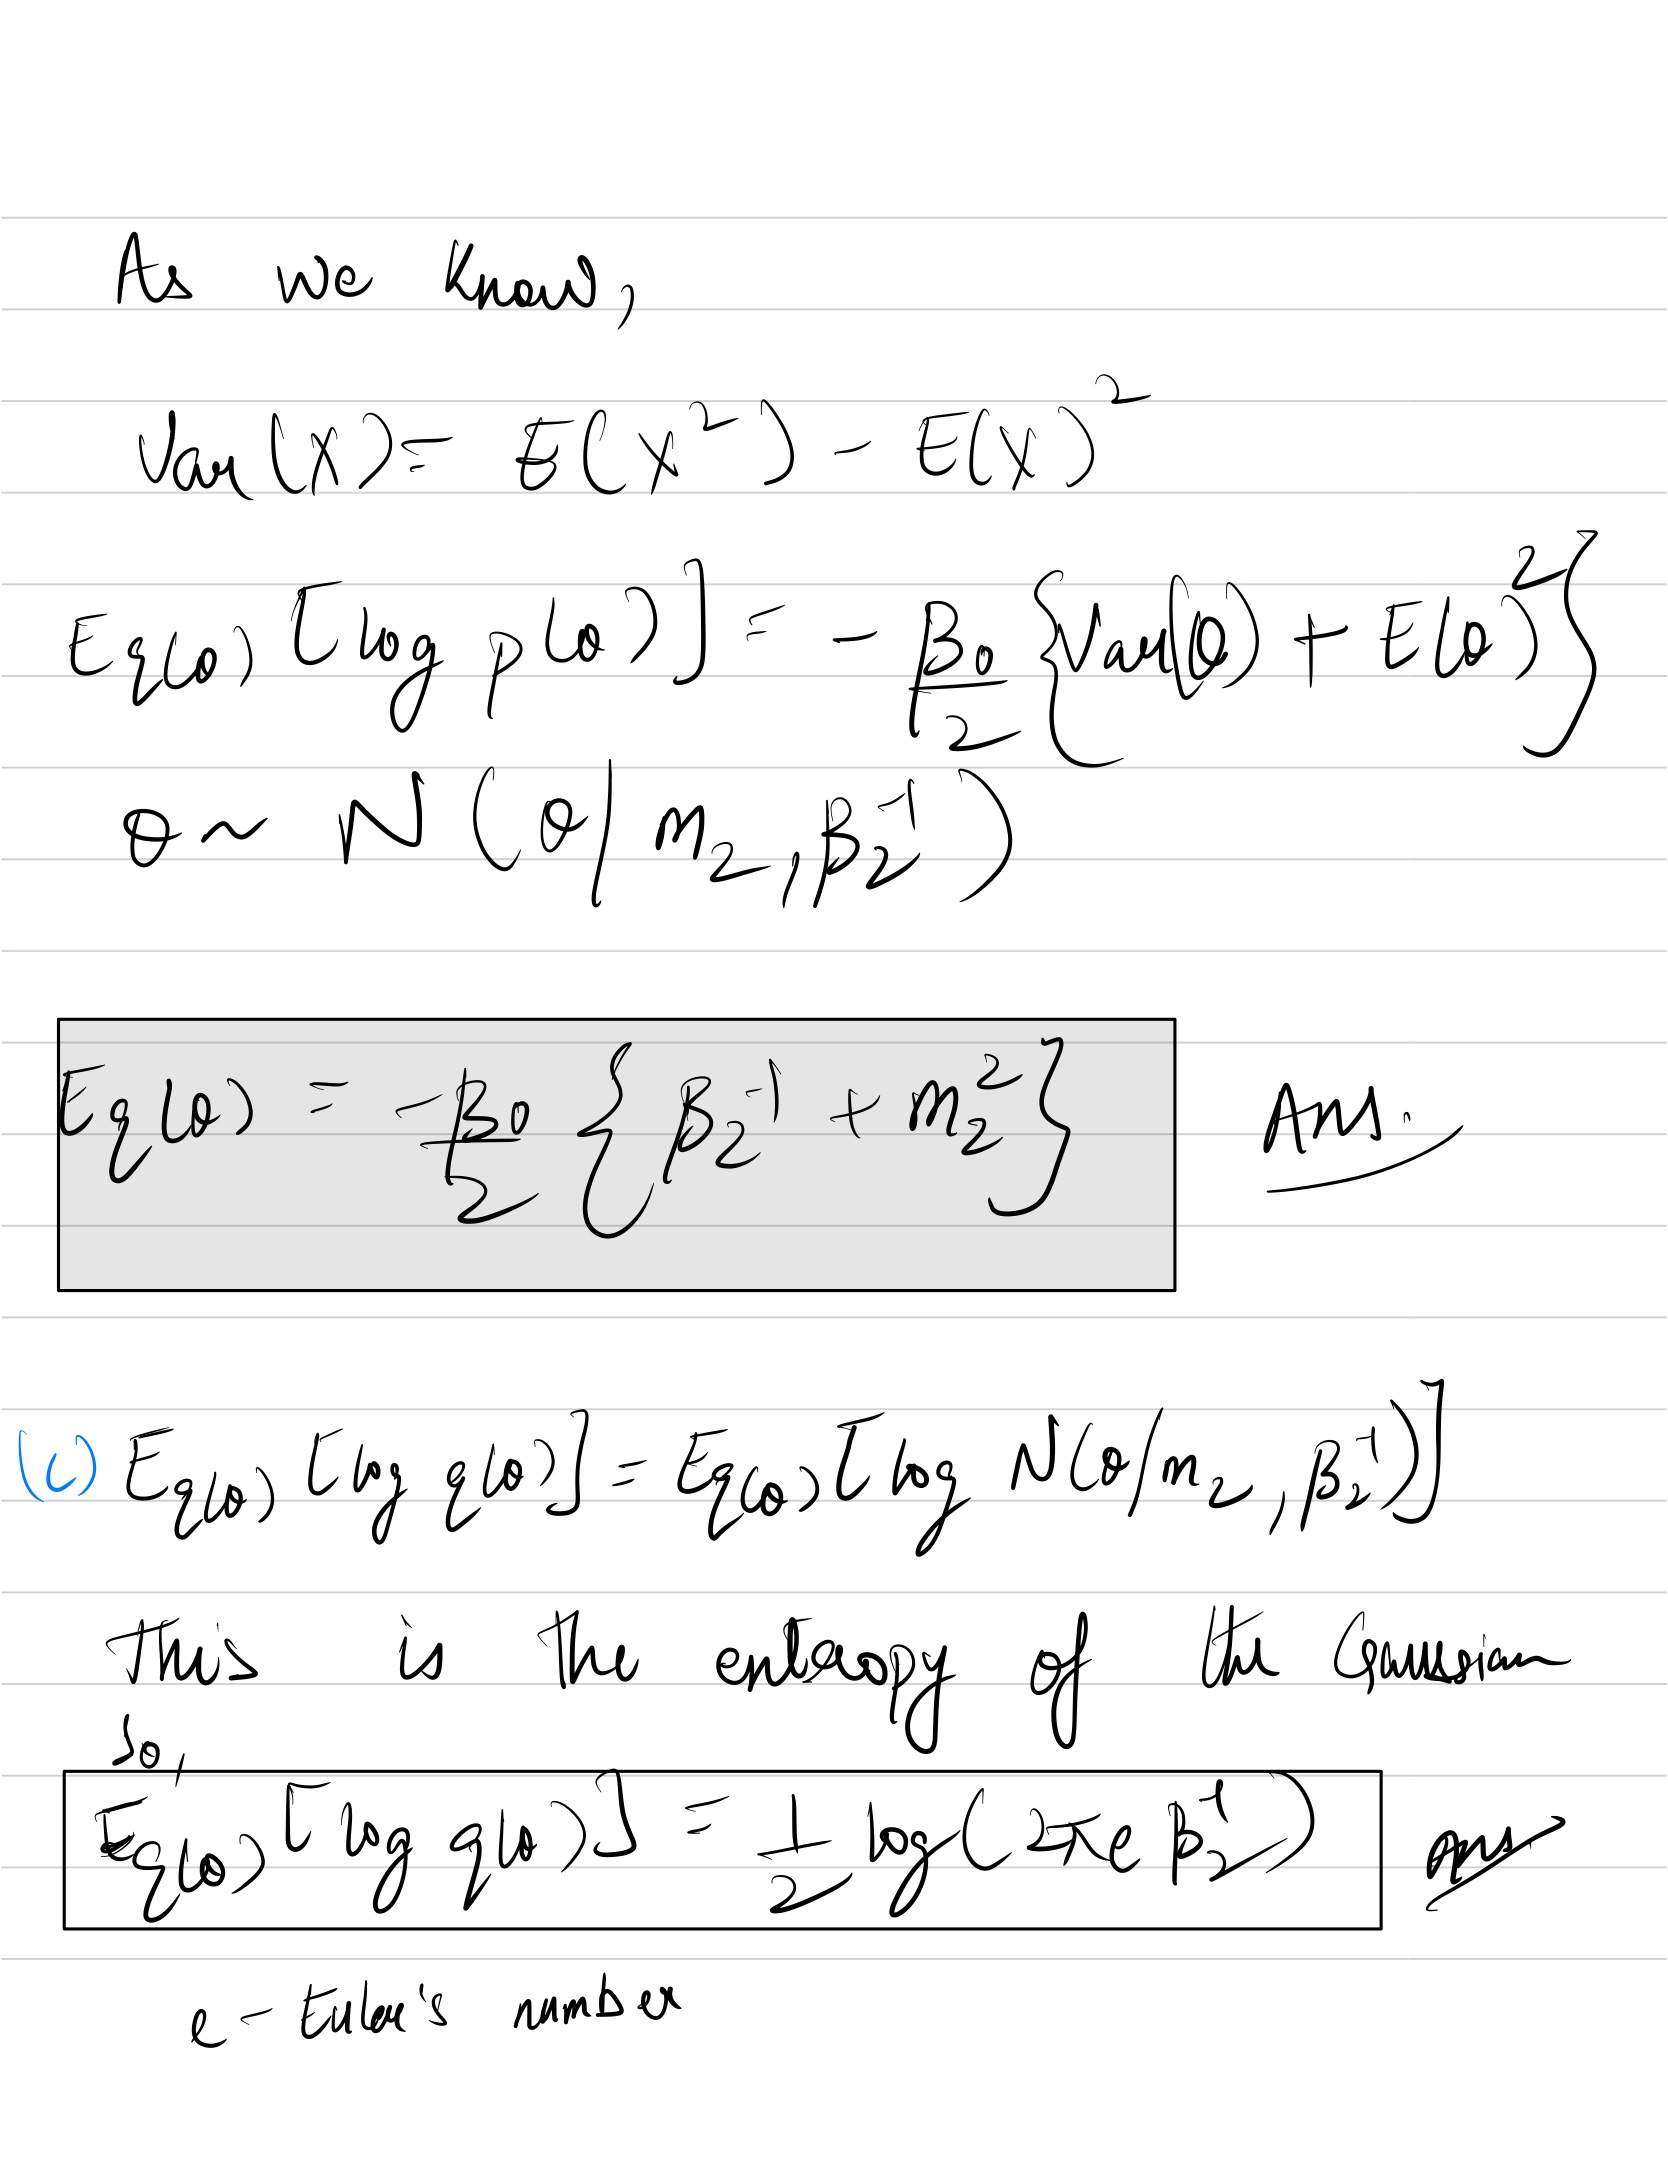 As we know,
Var(X) = E(X²) - E(X)²
E_q(θ) [log p(θ)] = - β₀/2 {Var(θ) + E(θ)²}
θ ~ N(θ/m₂, β₂⁻¹)
E_q(θ) = -β₀/2 {β₂⁻¹ + m₂²} Ans.
(c) E_q(θ) [log q(θ)] = E_q(θ) [log N(θ/m₂, β₂⁻¹)]
This is the entropy of the Gaussian
So,
E_q(θ) [log q(θ)] = 1/2 log(2πe β₂⁻¹) Ans
e - Euler's number